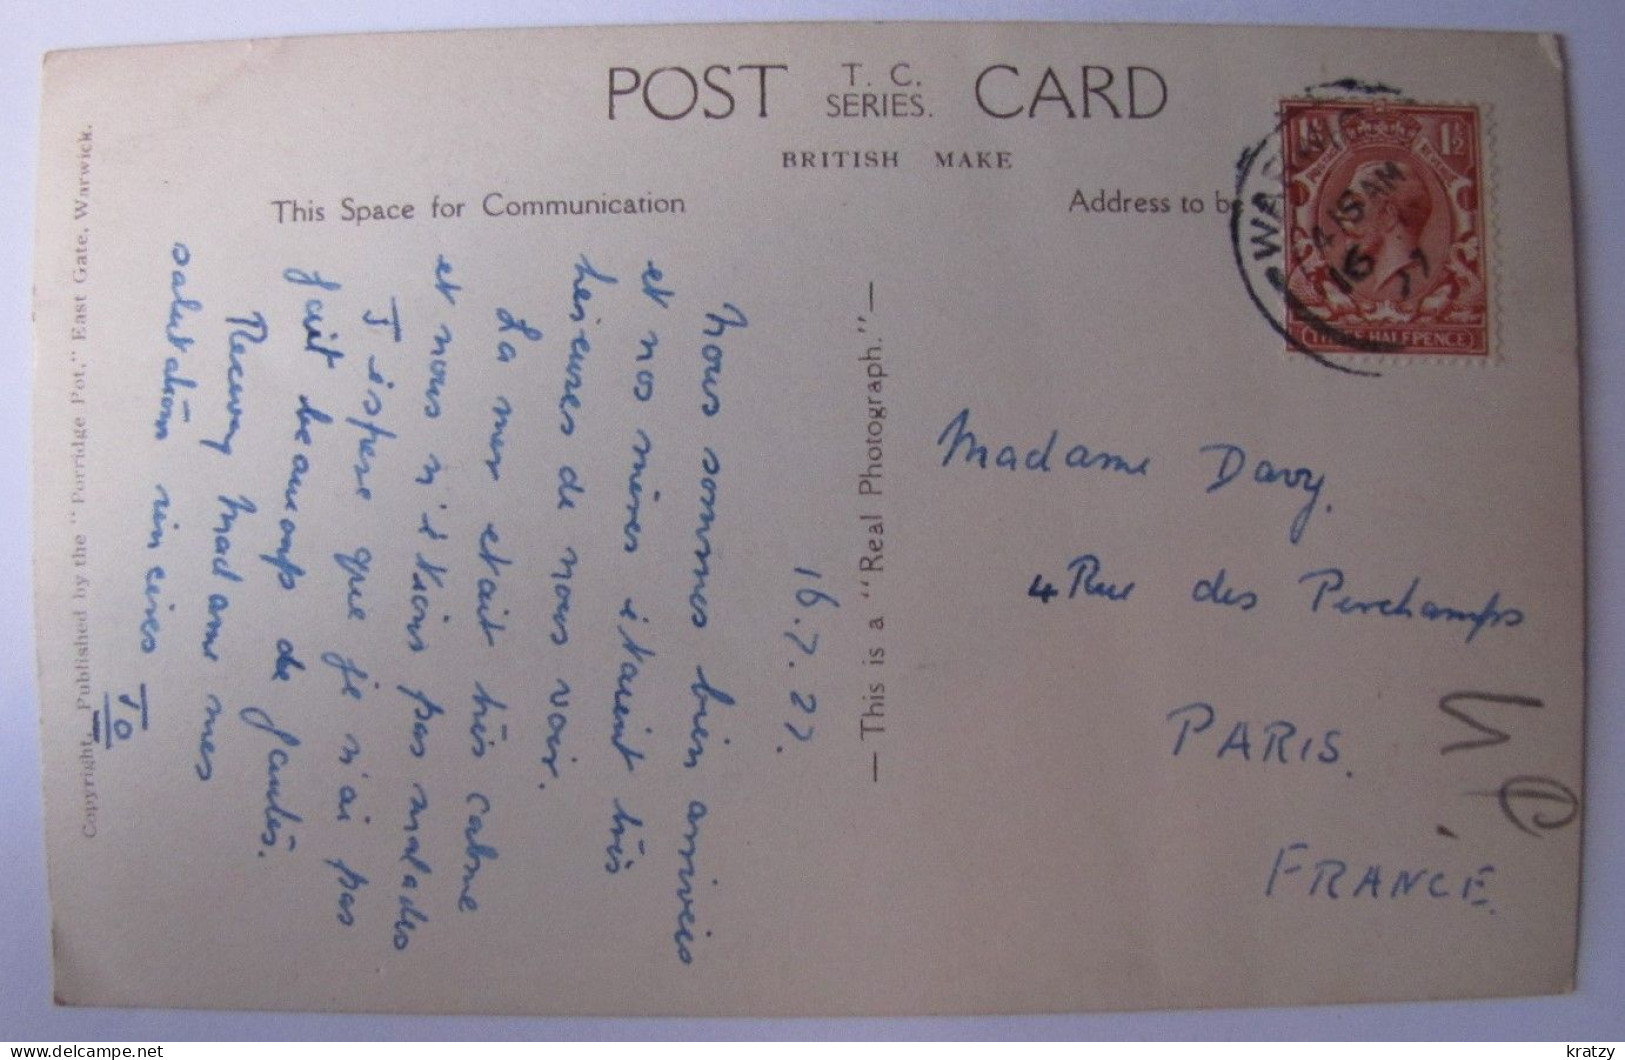 POST T. C. SERIES. CARD
BRITISH MAKE
This Space for Communication
Address to be
16.7.27.
Nous sommes bien arrivés
et nos mères étaient très
heureuses de nous voir.
La mer etait très calme
et nous n'étions pas malades
J'éspere que je n'ai pas
fait beaucoup de fautes.
Recevez Madame mes
salutations sincères
TO
— This is a "Real Photograph." —
Copyright, Published by the "Porridge Pot," East Gate, Warwick.
WARWICK
4 15 AM
16
1½ 1½
POSTAGE REVENUE
THREE HALFPENCE
Madame Davy.
4 Rue des Perchamps
PARIS.
FRANCE.
kratzy